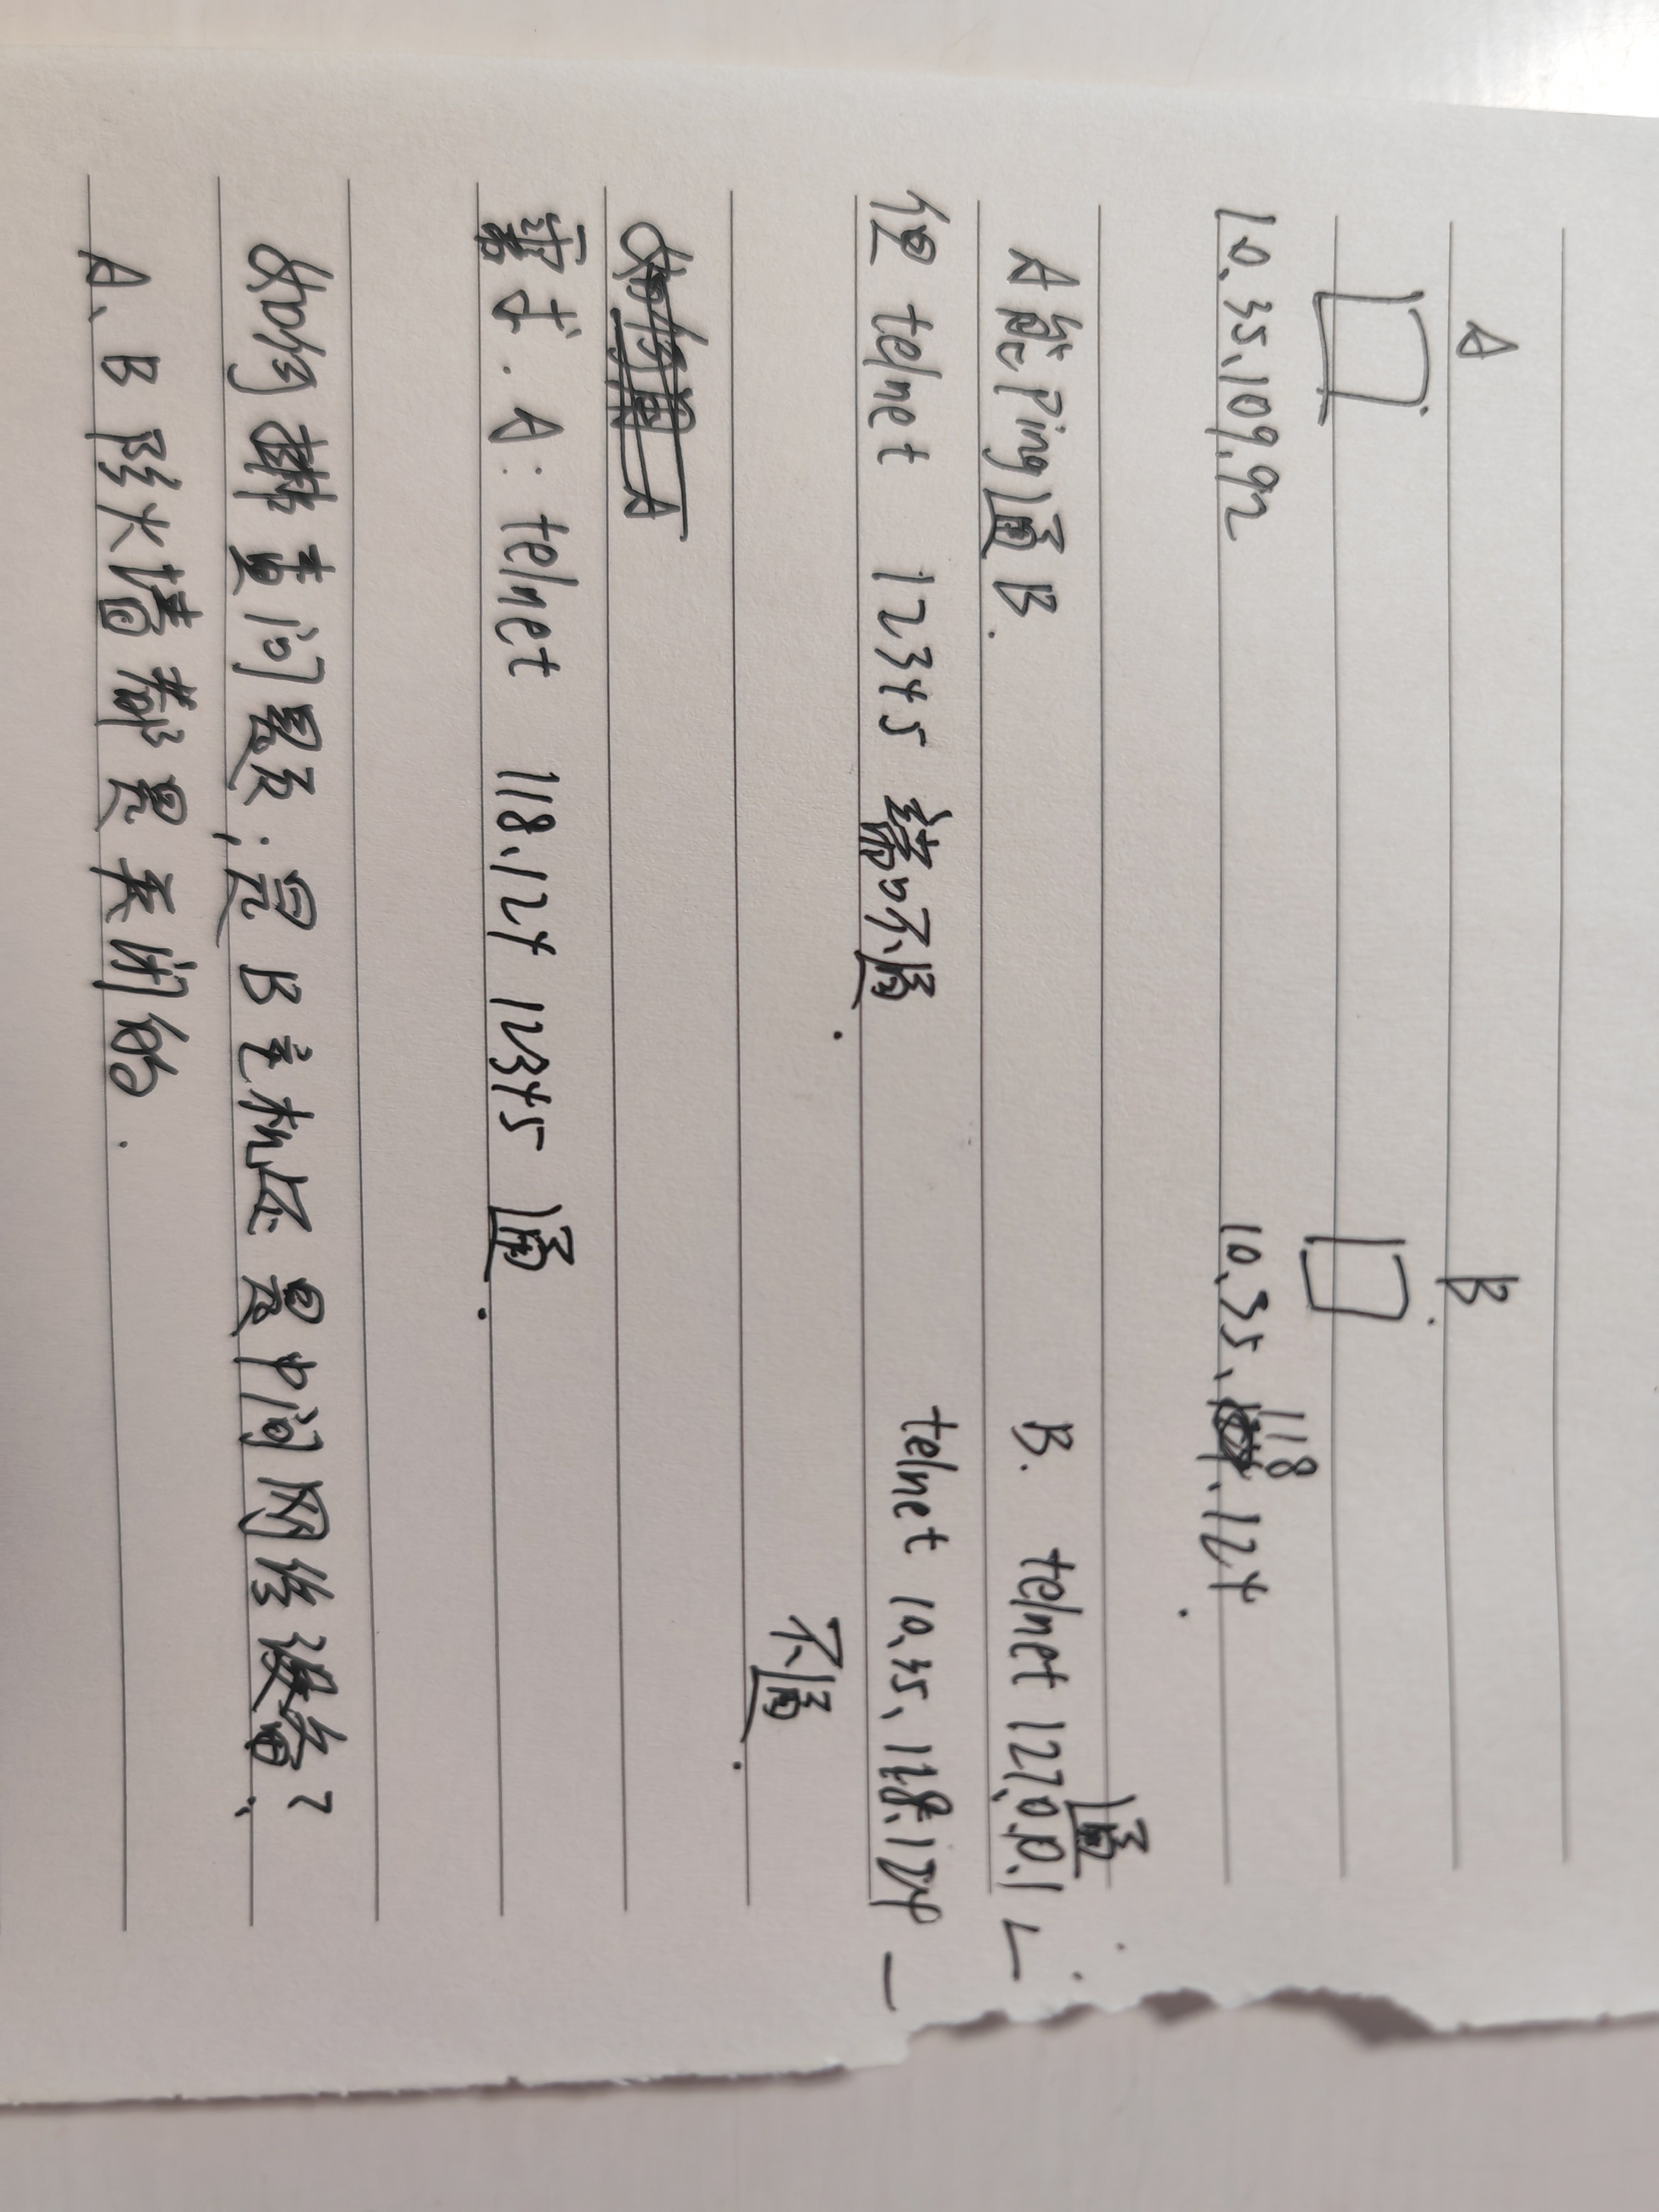 A B
10.35.109.92 10.35.118.124
A能Ping通B. B. telnet 127.0.0.1 通
但 telnet 12345 端口不通. telnet 10.35.118.124
不通.
需求. A: telnet 118.124 12345 通.
如何排查问题及:是B主机还是中间网络设备?
A、B防火墙都是关闭的.